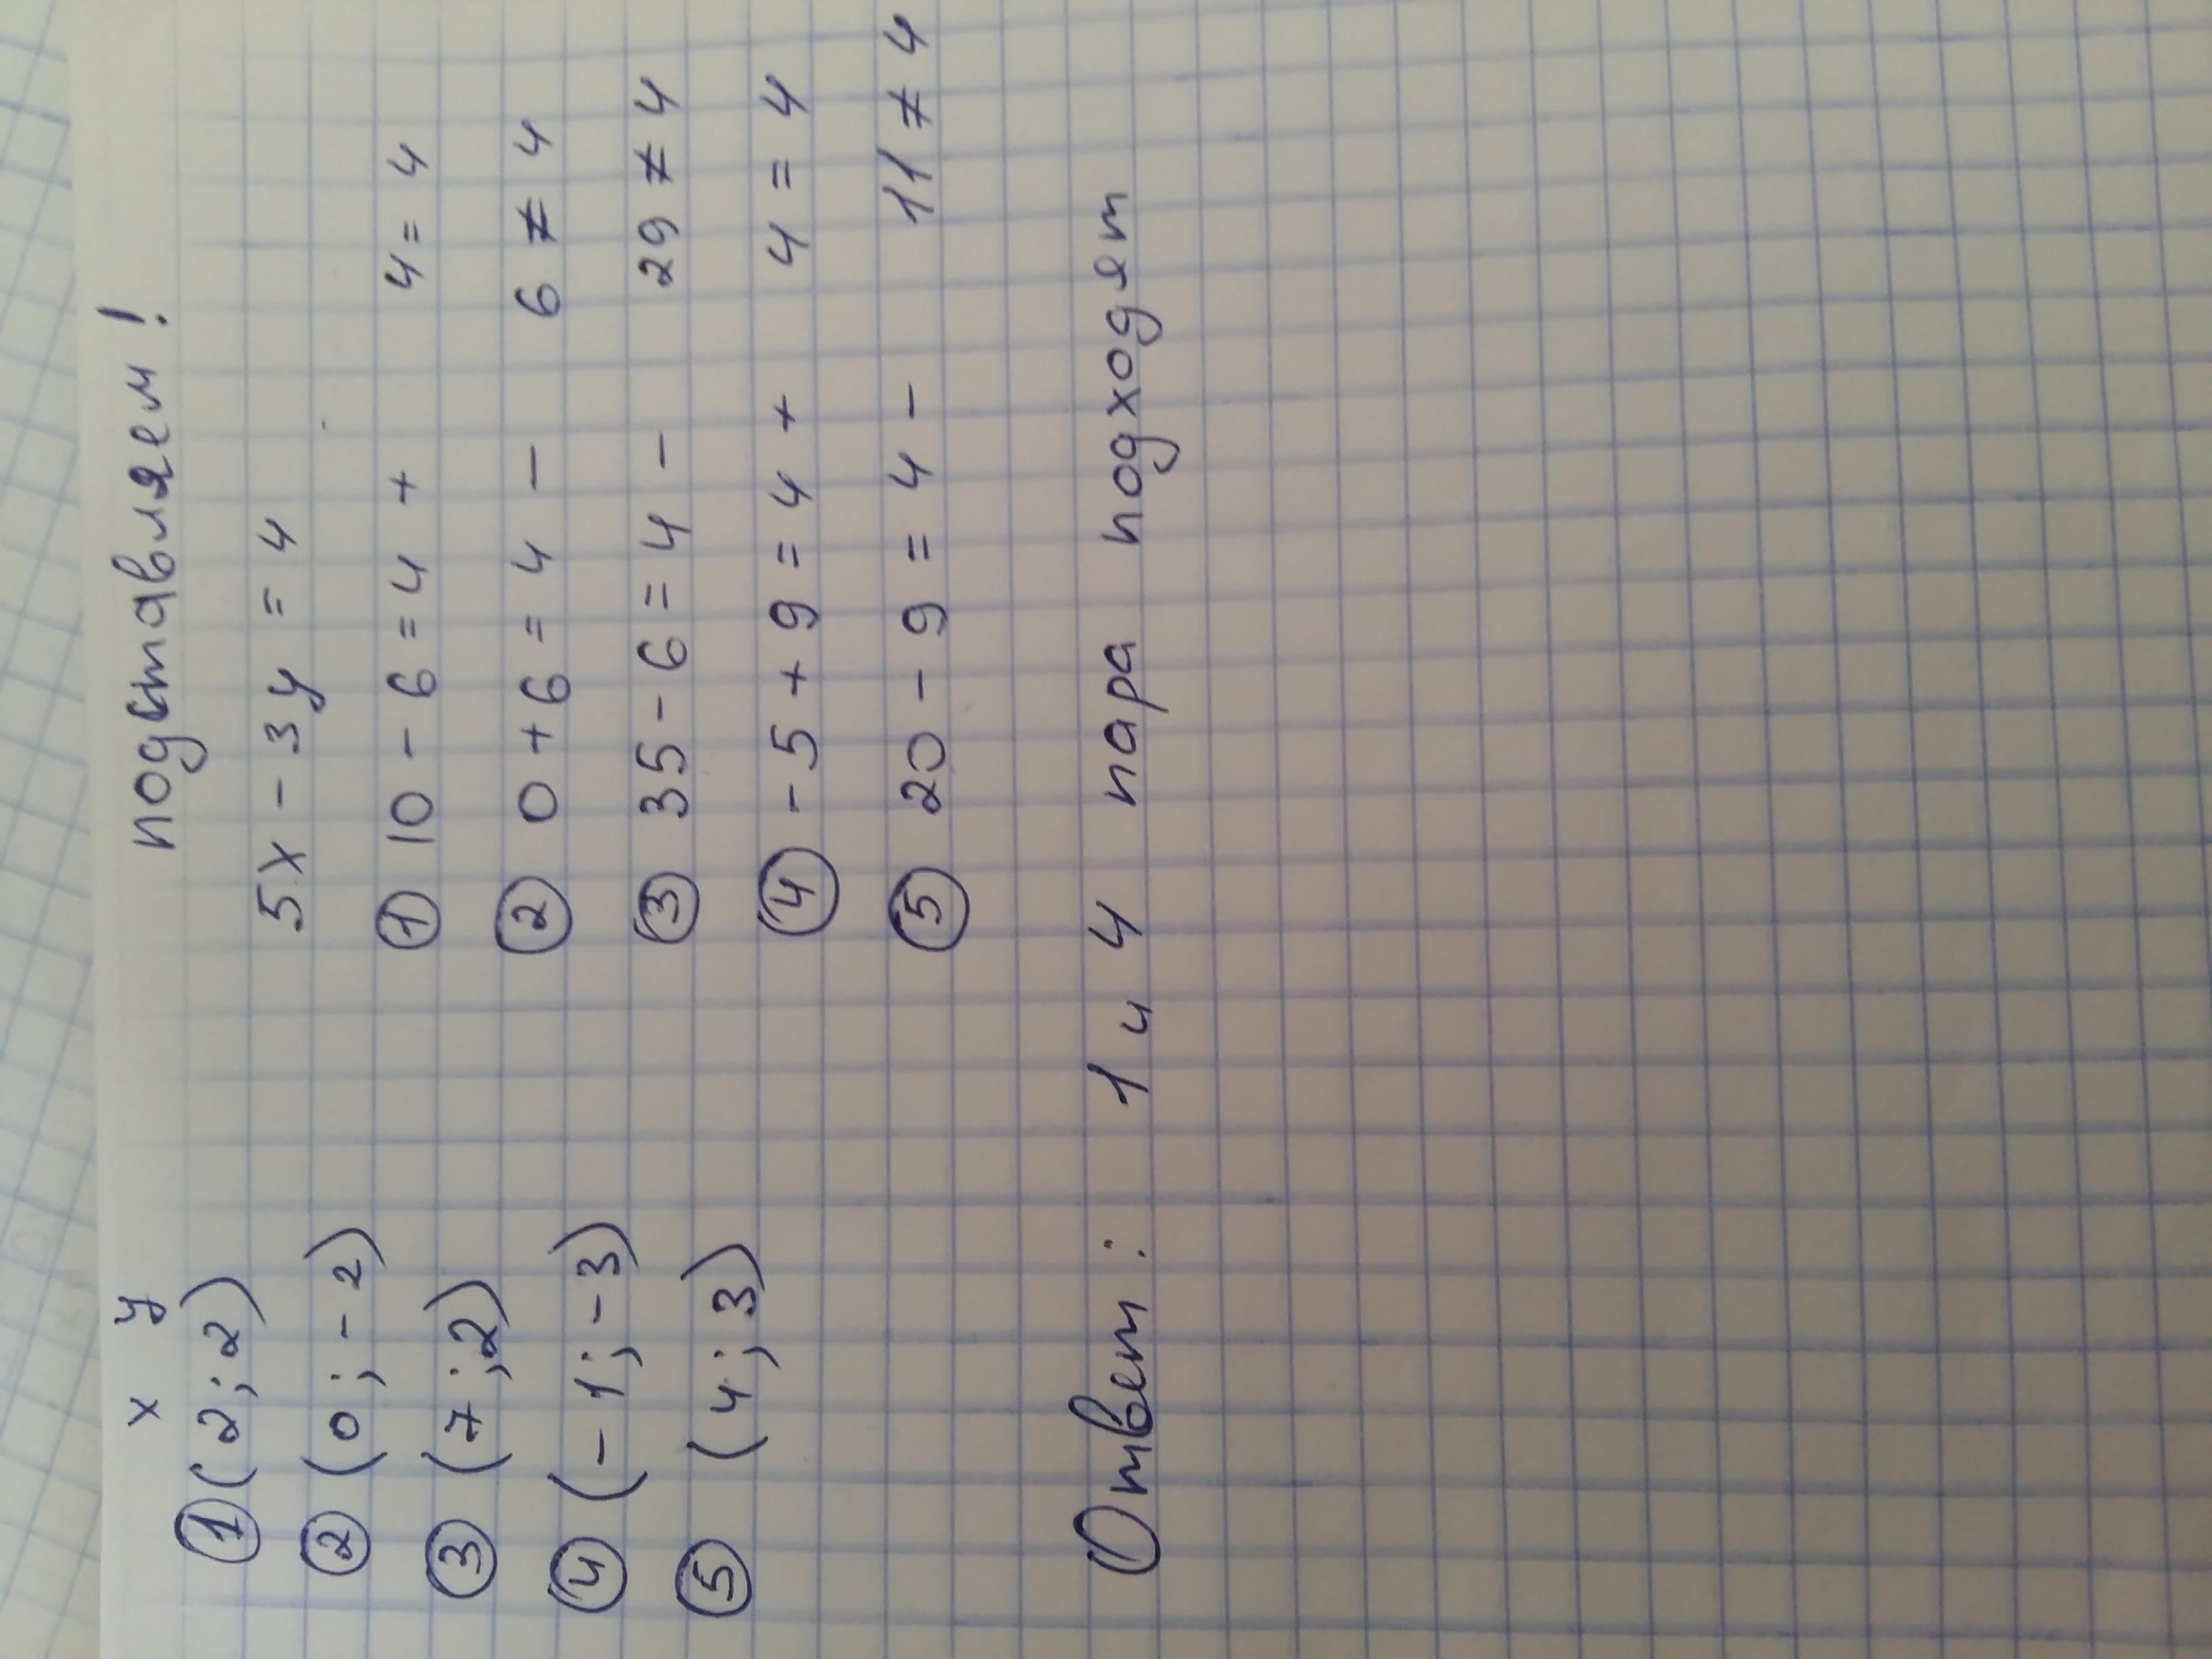 x y
① (2; 2)
② (0; -2)
③ (7; 2)
④ (-1; -3)
⑤ (4; 3)
подставляем!
5x - 3y = 4
① 10 - 6 = 4 + 4 = 4
② 0 + 6 = 4 - 6 ≠ 4
③ 35 - 6 = 4 - 29 ≠ 4
④ -5 + 9 = 4 + 4 = 4
⑤ 20 - 9 = 4 - 11 ≠ 4
Ответ: 1 и 4 пара подходят